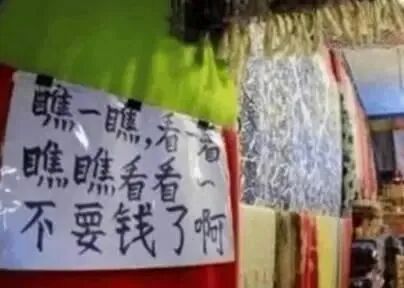 瞧一瞧,看一看
瞧瞧看看~
不要钱了啊